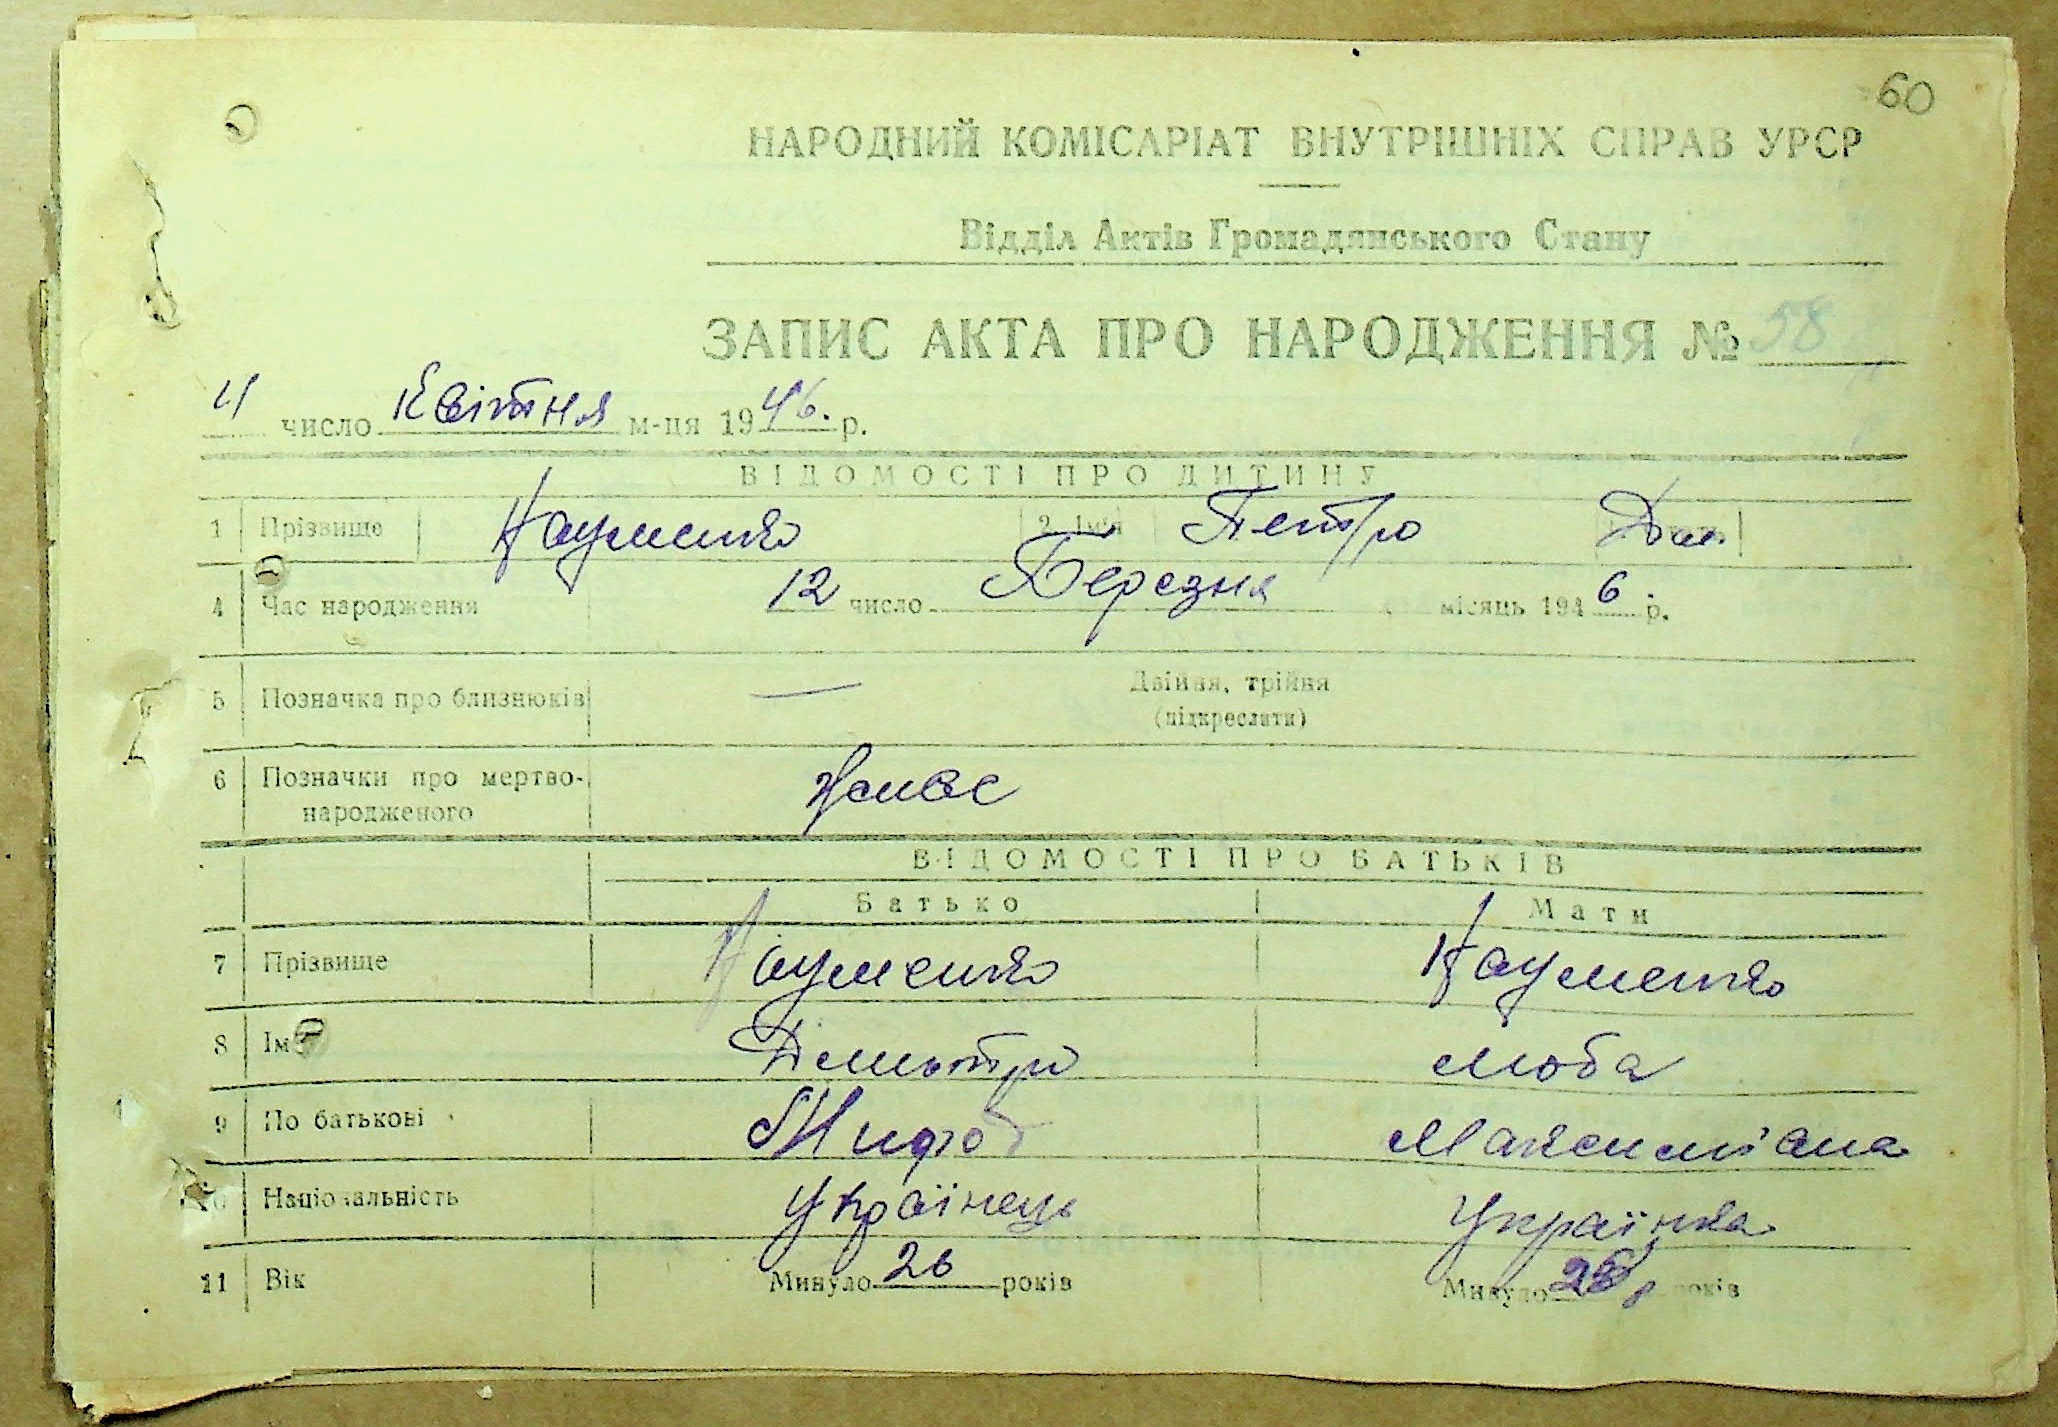 60
НАРОДНИЙ КОМІСАРІАТ ВНУТРІШНІХ СПРАВ УРСР
Відділ Актів Громадянського Стану
ЗАПИС АКТА ПРО НАРОДЖЕННЯ № 58
4 число Квітня м-ця 1946. р.
ВІДОМОСТІ ПРО ДИТИНУ
1 Прізвище Науменко 2. Ім'я Петро Дм.
4 Час народження 12 число Березня місяць 1946. р.
5 Позначка про близнюків — Двійня, трійня
(підкреслити)
6 Позначки про мертво-
народженого Немає
ВІДОМОСТІ ПРО БАТЬКІВ
Батько Мати
7 Прізвище Науменко Науменко
8 Ім'я Дмитро Люба
9 По батькові
10 Національність Українець Українка
11 Вік Минуло 26 років Минуло років